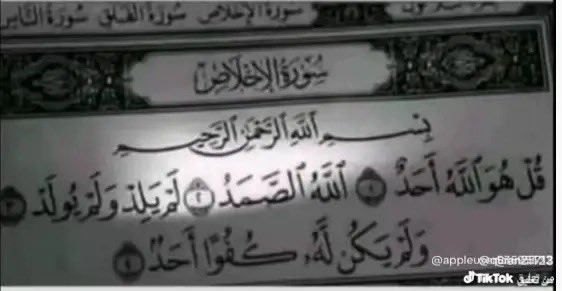 سُورَةُ الإِخْلَاصِ سُورَةُ الفَلَقِ سُورَةُ النَّاسِ
سُورَةُ الإِخْلَاصِ
بِسْمِ ٱللَّهِ ٱلرَّحْمَٰنِ ٱلرَّحِيمِ
قُلْ هُوَ ٱللَّهُ أَحَدٌ ١ ٱللَّهُ ٱلصَّمَدُ ٢ لَمْ يَلِدْ وَلَمْ يُولَدْ ٣
وَلَمْ يَكُن لَّهُۥ كُفُوًا أَحَدٌۢ ٤
TikTok